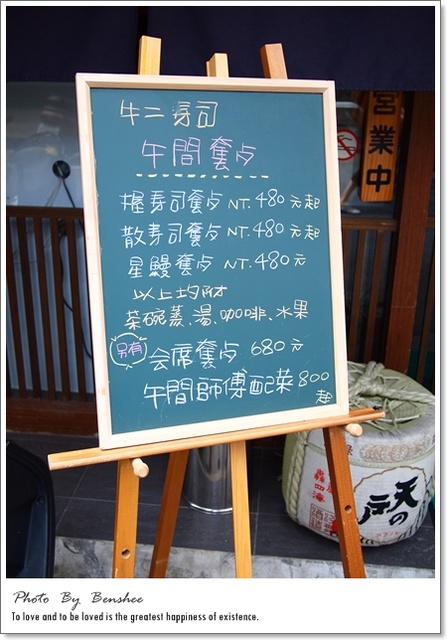 牛二寿司
午間奮点
握寿司奮点 NT.480元起
散寿司奮点 NT.480元起
星鰻奮点 NT.480元
以上均附
茶碗蒸、湯、咖啡、水果
另有 会席奮点 680元
午間師傅配菜 800起
営業中
天の戸
Photo By Benshee
To love and to be loved is the greatest happiness of existence.